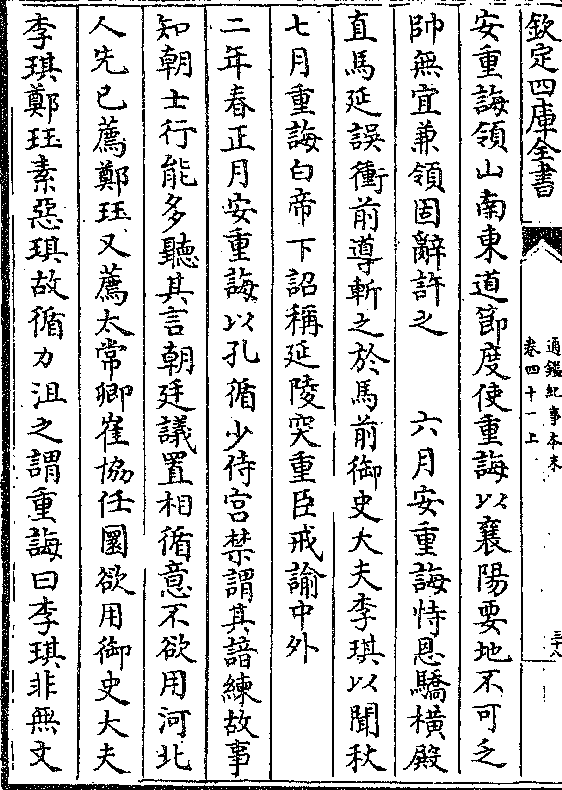 欽定四庫全書
通鑑紀事本末
卷四十一上
三十八
安重誨領山南東道節度使重誨以襄陽要地不可乏
帥無宜兼領固辭許之　六月安重誨恃恩驕横殿
直馬延誤衝前導斬之於馬前御史大夫李琪以聞秋
七月重誨白帝下詔稱延陵突重臣戒諭中外
二年春正月安重誨以孔循少侍宫禁謂其諳練故事
知朝士行能多聽其言朝廷議置相循意不欲用河北
人先已薦鄭珏又薦太常卿崔協任圜欲用御史大夫
李琪鄭珏素惡琪故循力沮之謂重誨曰李琪非無文